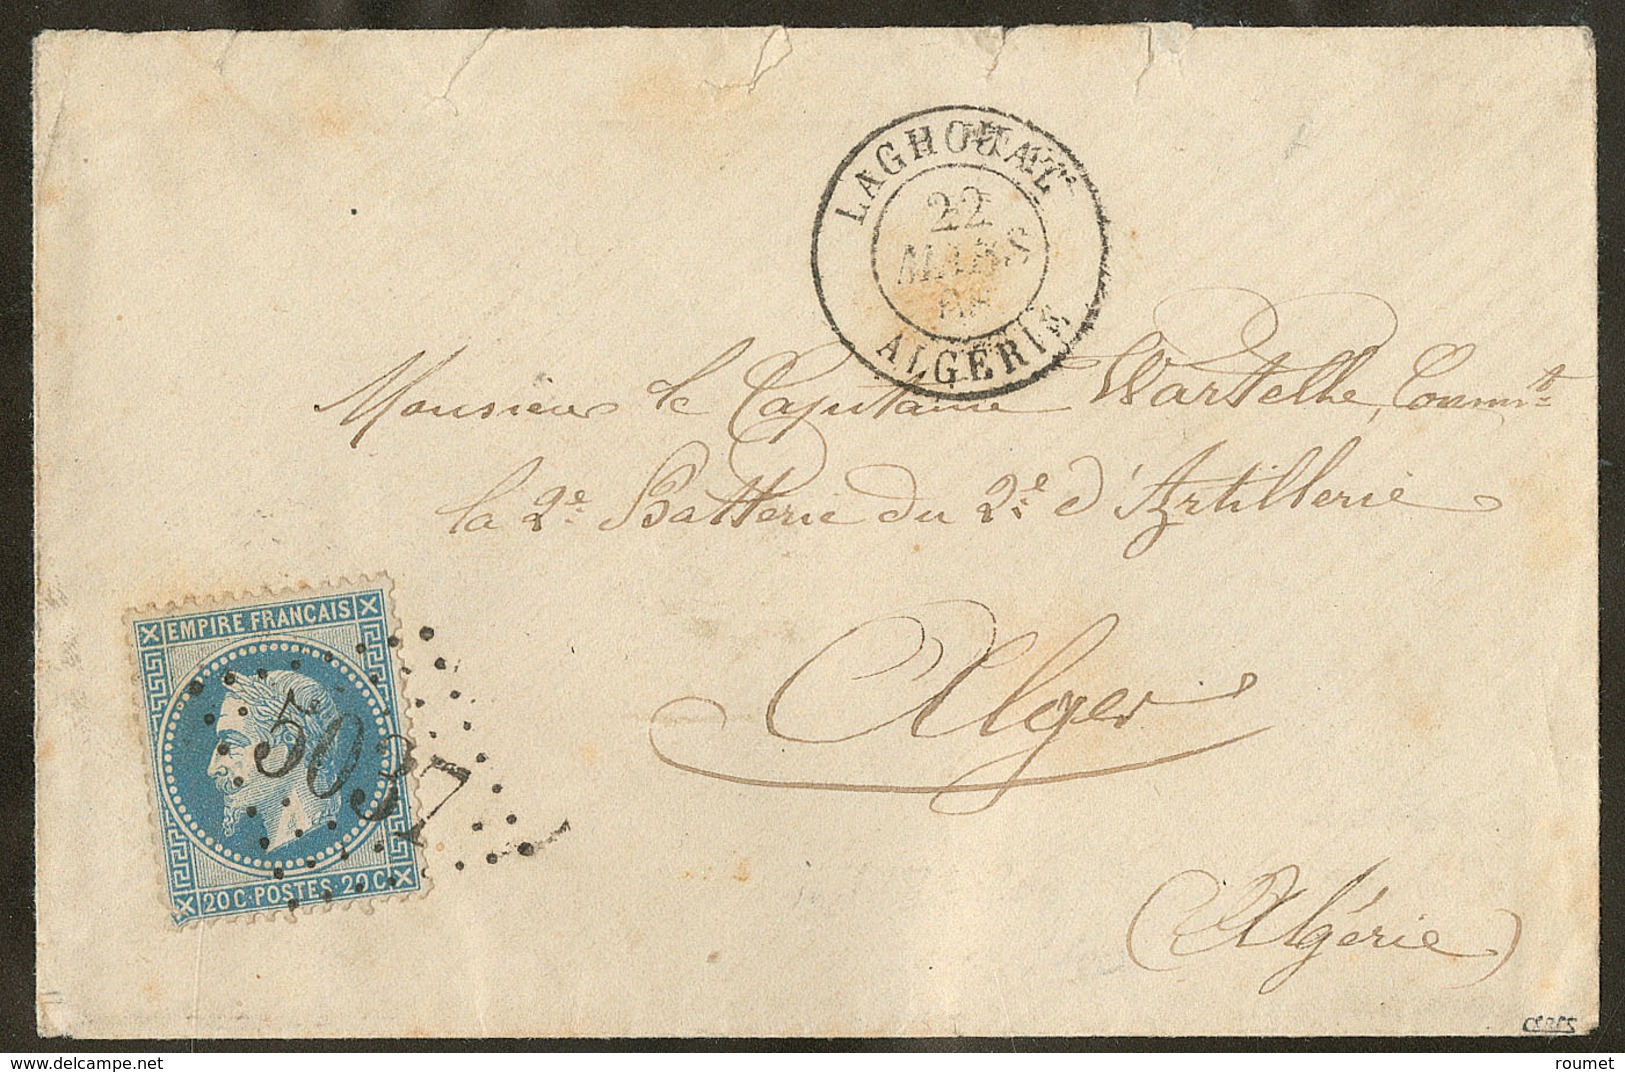 LAGHOUAT
22
MARS
68
ALGÉRIE
Monsieur le Capitaine Wartelle, Comm.t
la 2e Batterie du 2e d'Artillerie
Alger
(Algérie)
EMPIRE FRANCAIS
5037
20 C. POSTES 20 C.
CERES
www.delcampe.net
roumet